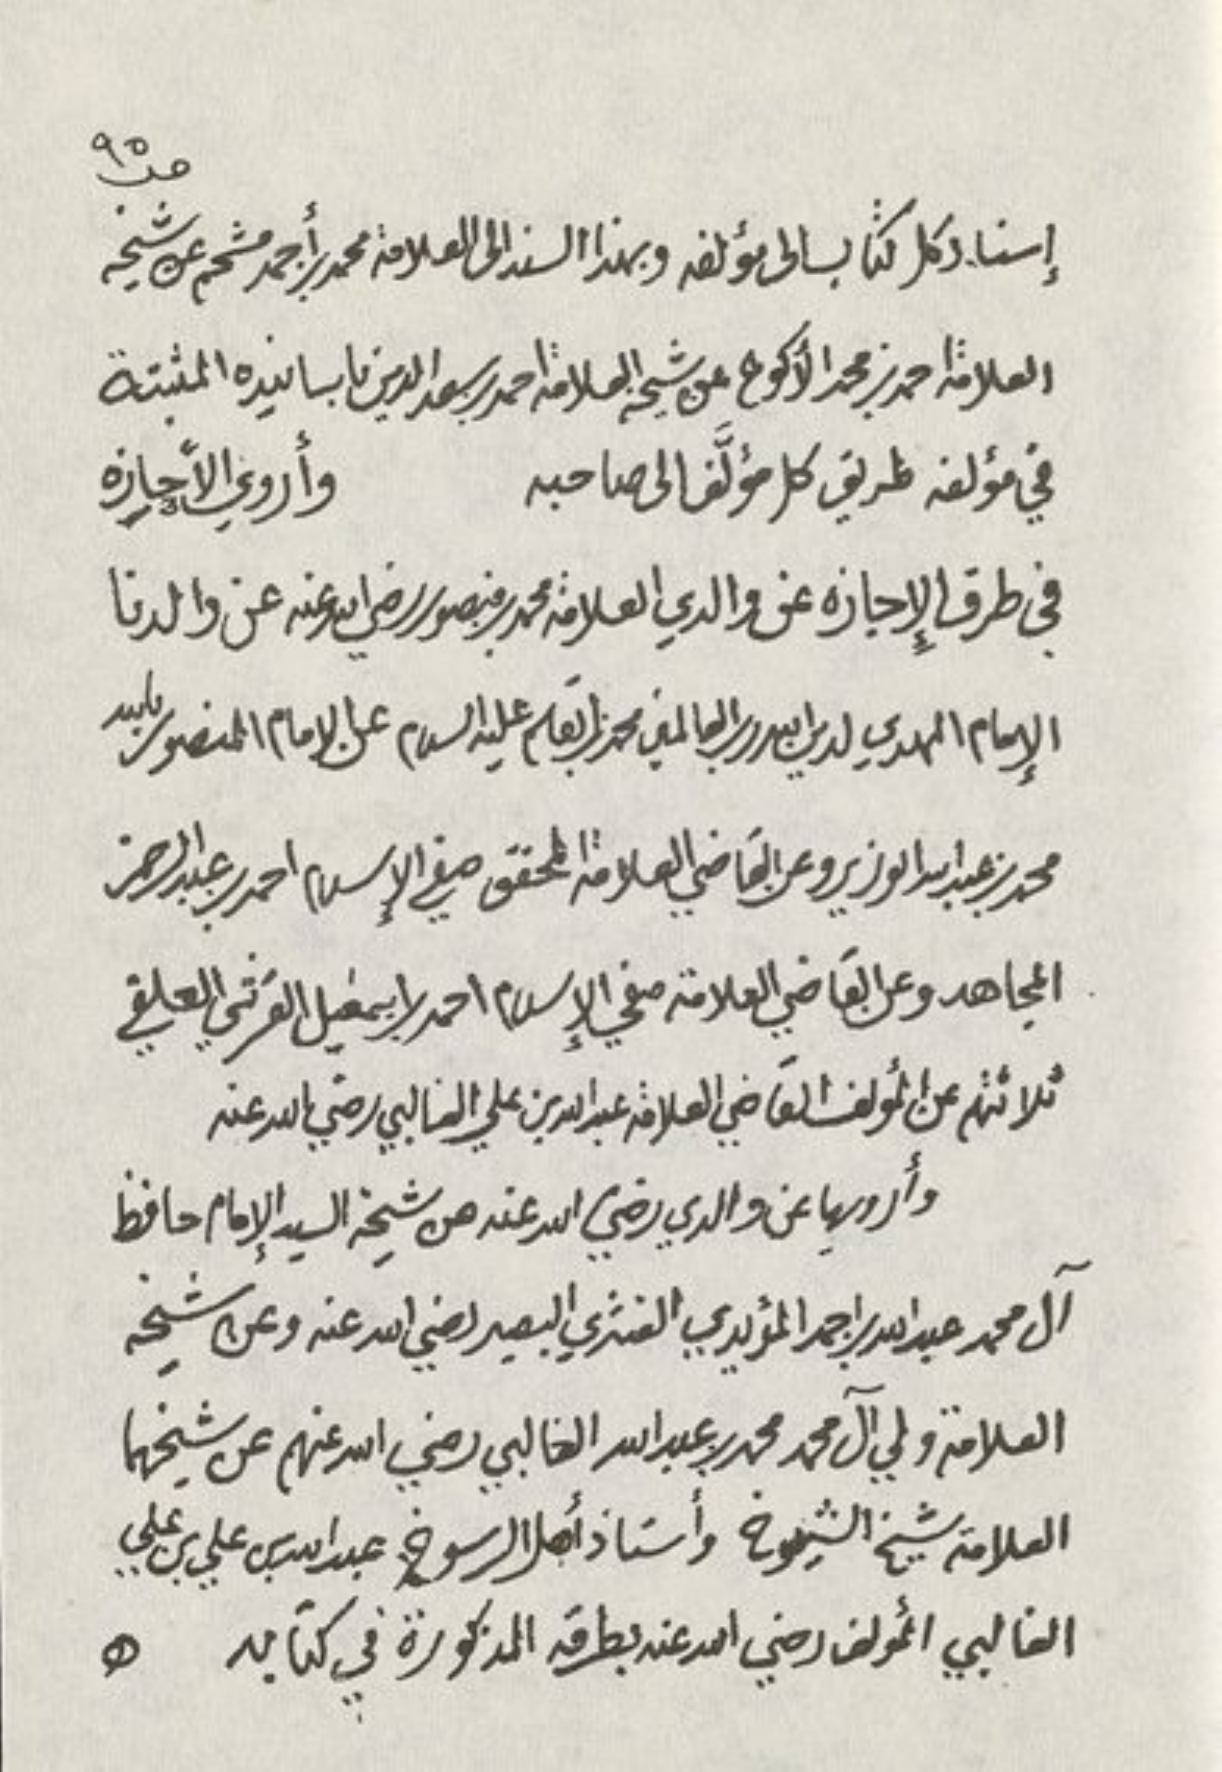 ص ٩٥
إسناد كل كتاب الى مؤلفه وبهذا السند الى العلامة محمد بن أحمد مشحم عن شيخه
العلامة احمد بن محمد الأكوع عن شيخه العلامة احمد بن سعد الدين باسانيده المثبتة
في مؤلفه طريق كل مؤلَّف الى صاحبه وأروي الإجازة
في طرق الإجازة عن والدي العلامة محمد بن منصور رضي الله عنه عن والدنا
الإمام المهدي لدين الله رب العالمين محمد بن القاسم عليه السلام عن الإمام المنصور بالله
محمد بن عبدالله الوزير وعن القاضي العلامة المحقق صفي الإسلام احمد بن عبدالرحمن
المجاهد وعن القاضي العلامة صفي الإسلام احمد بن إسمعيل القرشي العلفي
ثلاثتهم عن المؤلف القاضي العلامة عبدالله بن علي الغالبي رضي الله عنه
وأرويها عن والدي رضي الله عنه عن شيخه السيد الإمام حافظ
آل محمد عبدالله بن احمد المؤيدي العنثري البصير رضي الله عنه وعن شيخه
العلامة ولي آل محمد محمد بن عبدالله الغالبي رضي الله عنهم عن شيخهما
العلامة شيخ الشيوخ وأستاذ أهل الرسوخ عبدالله بن علي بن علي
الغالبي المؤلف رضي الله عنه بطرقه المذكورة في كتابه